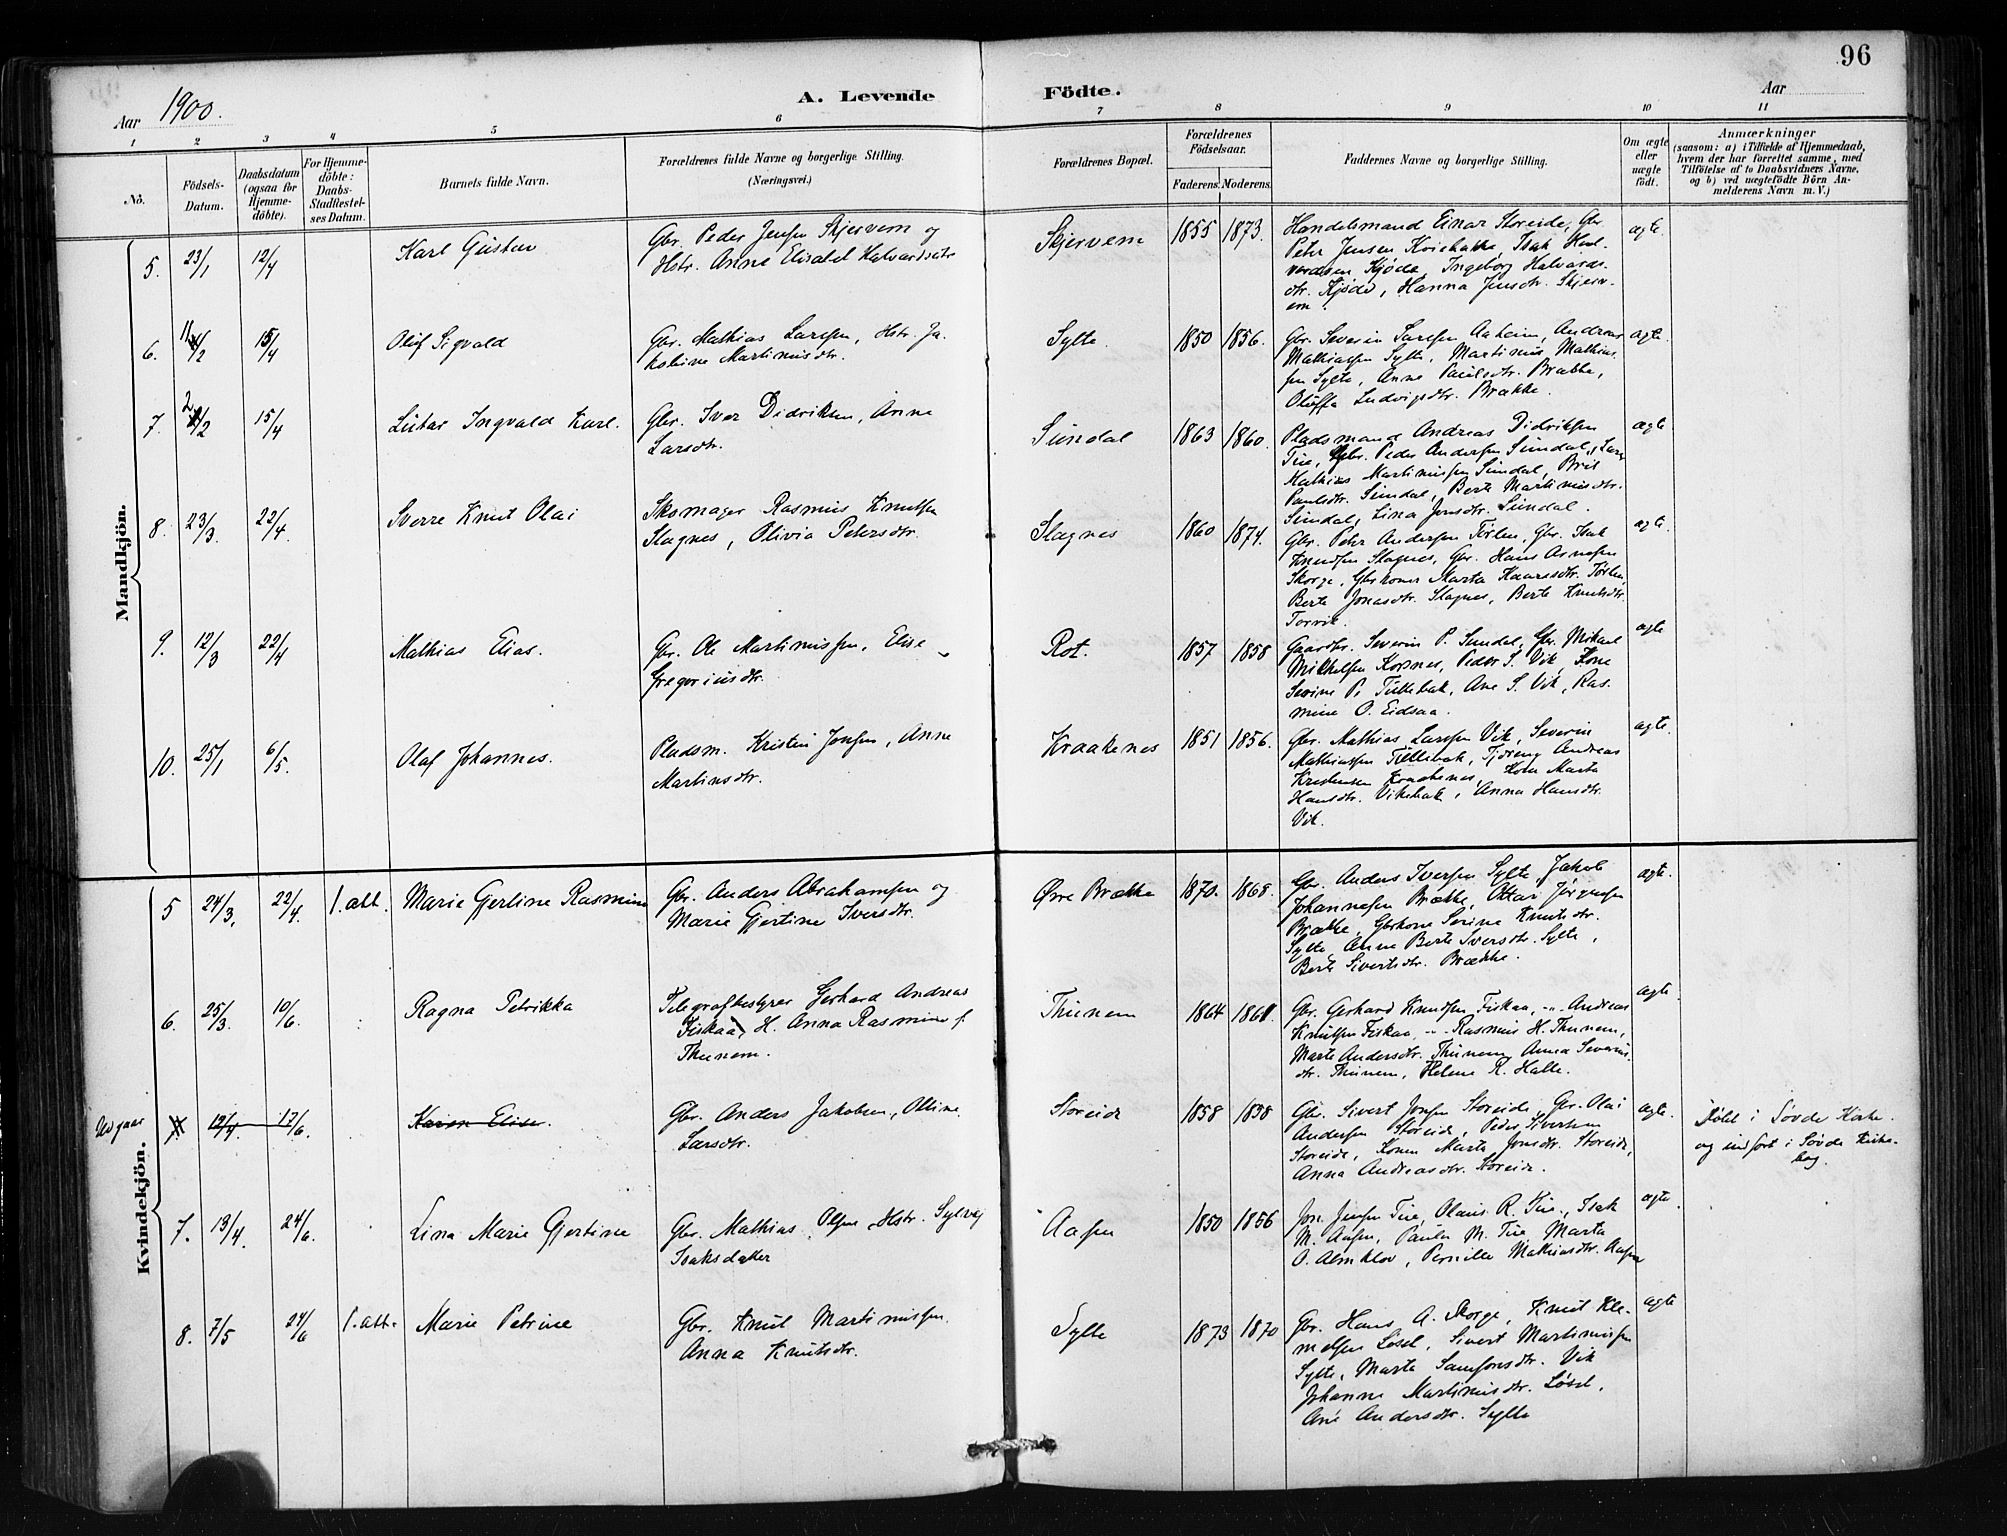 96
Aar 1900.
A. Levende Födte.
Aar
1 2 3 4 5 6 7 8 9 10 11
No.
Födsels-Datum.
Daabsdatum (ogsaa for Hjemme-döbte).
For Hjemme-döbte: Daabs-Stadfæstel-ses Datum.
Barnets fulde Navn.
Forældrenes fulde Navne og borgerlige Stilling.
(Næringsvei.)
Forældrenes Bopæl.
Forældrenes Födselsaar.
Faderens. Moderens.
Faddernes Navne og borgerlige Stilling.
Om ægte eller uægte födt.
Anmærkninger
(saasom: a) i Tilfælde af Hjemmedaab, hvem der har forrettet samme, med Tilföielse af to Daabsvidners Navne, og b) ved uægtefödte Börn An-melderens Navn m. V.)
Mandkjön.
5. 23/1 12/4 Karl Gustav
Gbr. Peder Jensen Skjervem og
Hstr. Anne Elisabet Halvardsdtr
Skjervem 1855 1873.
Handelsmand Einar Storeide, Gbr
Peter Jensen Koiebakke, Isak Hal-
vardsen Kjøde, Ingeborg Halvards-
dtr. Kjøde, Hanna Jensdtr. Skjerv-
em.
ægte.
6. 11/2 15/4 Oluf Sigvald
Gbr. Mathias Larssen, Hstr. Ja-
kobine Martinusdtr.
Sylte. 1850 1856.
Gbr. Severin Larssen Aaheim, Andreas
Mathiassen Sylte, Martinus Mathias-
sen Sylte, Anne Paulsdtr. Brække,
Oluffa Ludvigsdtr. Brække.
ægte.
7. 2/2 15/4 Lutar Ingvald Karl.
Gbr. Iver Didriksen, Anne
Larsdtr.
Sundal 1863 1860.
Pladsmand Andreas Didriksen
Tue, Gbr. Peder Andersen Sundal, Lars
Mathias Martinussen Sundal, Brit
Paulsdtr. Sundal, Berte Martinusdtr.
Sundal, Lina Jensdtr. Sundal.
ægte
8. 23/3 22/4. Sverre Knut Olai
Skomager Rasmus Knutsen
Slagnes, Olivia Petersdtr.
Slagnes 1860 1874.
Gbr. Peter Andersen Torlen, Gbr. Isak
Knudsen Slagnes, Gbr. Hans Arnesen
Skorge, Gbrkoner Marta Kaarsdtr. Törlen,
Berte Jonasdtr. Slagnes, Berte Knutsdtr.
Torvik.
ægte.
9. 12/3 22/4 Mathias Elias.
Gbr. Ole Martinussen, Elise
Gregoriusdtr.
Rot. 1857 1858
Gaardbr. Severin P. Sundal, Gbr. Mikael
Mikkelsen Korsnes, Peder S. Vik, Kone
Serine P. Tullebak, Ane S. Vik, Ras-
mine O. Eidsaa.
ægte
10. 25/1 6/5. Olaf Johannes.
Pladsm. Kristen Jensen, Anne
Martinsdtr.
Kraakenes 1851 1856.
Gbr. Mathias Larssen Vik, Severin
Mathiassen Tullebak, Tjdreng Andreas
Kristensen Kraakenes, Kone Marta
Hansdtr. Vikebak, Anna Hansdtr.
Vik.
ægte.
Kvindekjön.
5 24/3. 22/4. 1.att. Marie Gjertine Rasmine
Gbr. Anders Abrahamsen og
Marie Gjertine Iversdtr.
Øvre Brække 1870. 1868.
Gbr. Anders Iversen Sylte, Jakob
Johannesen Brække, Ottar Jörgensen
Brække, Gbrkone Serine Knutsdtr.
Sylte, Anne Berte Iversdtr. Sylte,
Berte Sivertsdtr. Brække.
ægte.
6. 25/3. 10/6. Ragna Petrikka
Telegrafbestyrer Gerhard Andreas
Fiskaa, H. Anna Rasmine f.
Thunem.
Thunem 1864 1861.
Gbr. Gerhard Knudsen Fiskaa, -"- Andreas
Knutsen Fiskaa, -"- Rasmus H. Thunem,
Marte Andersdtr. Thunem, Anna Severins-
dtr. Thunem, Helene R. Halle.
ægte.
Udgaar 7. 19/4. 17/6. Karen Elise.
Gbr. Anders Jakobsen, Olline
Larsdtr.
Storeide 1858 1858
Gbr. Sivert Jonsen Storeide, Gbr. Olai
Andersen Storeide, Peder Sivertsen
Storeide, Konen Marte Jonsdtr. Storeide,
Anna Andreasdtr. Storeide.
ægte.
Döbt i Søvde Kirke
og indfört i Søvde Kirke-
bog.
7. 13/4. 24/6. Lina Marie Gjertine
Gbr. Mathias Olsen Hstr. Sylvej
Isaksdatter
Aasen 1850 1856
Jon Jensen Tue, Olaus R. Tue, Isak
M. Aasen, Paula M. Tue, Marta
O. Almklov, Pernille Mathiasdtr. Aasen
ægte.
8. 7/5 24/6 1.att. Marie Petrine
Gbr. Knut Martinussen.
Anna Knutsdtr.
Sylte 1873 1870
Gbr. Hans A. Skorge, Knut Kle-
metsen Løset, Sivert Martinussen
Sylte, Marta Samsonsdtr. Vik
Johanne Martinusdtr. Løset,
Ane Andersdtr. Sylte
ægte